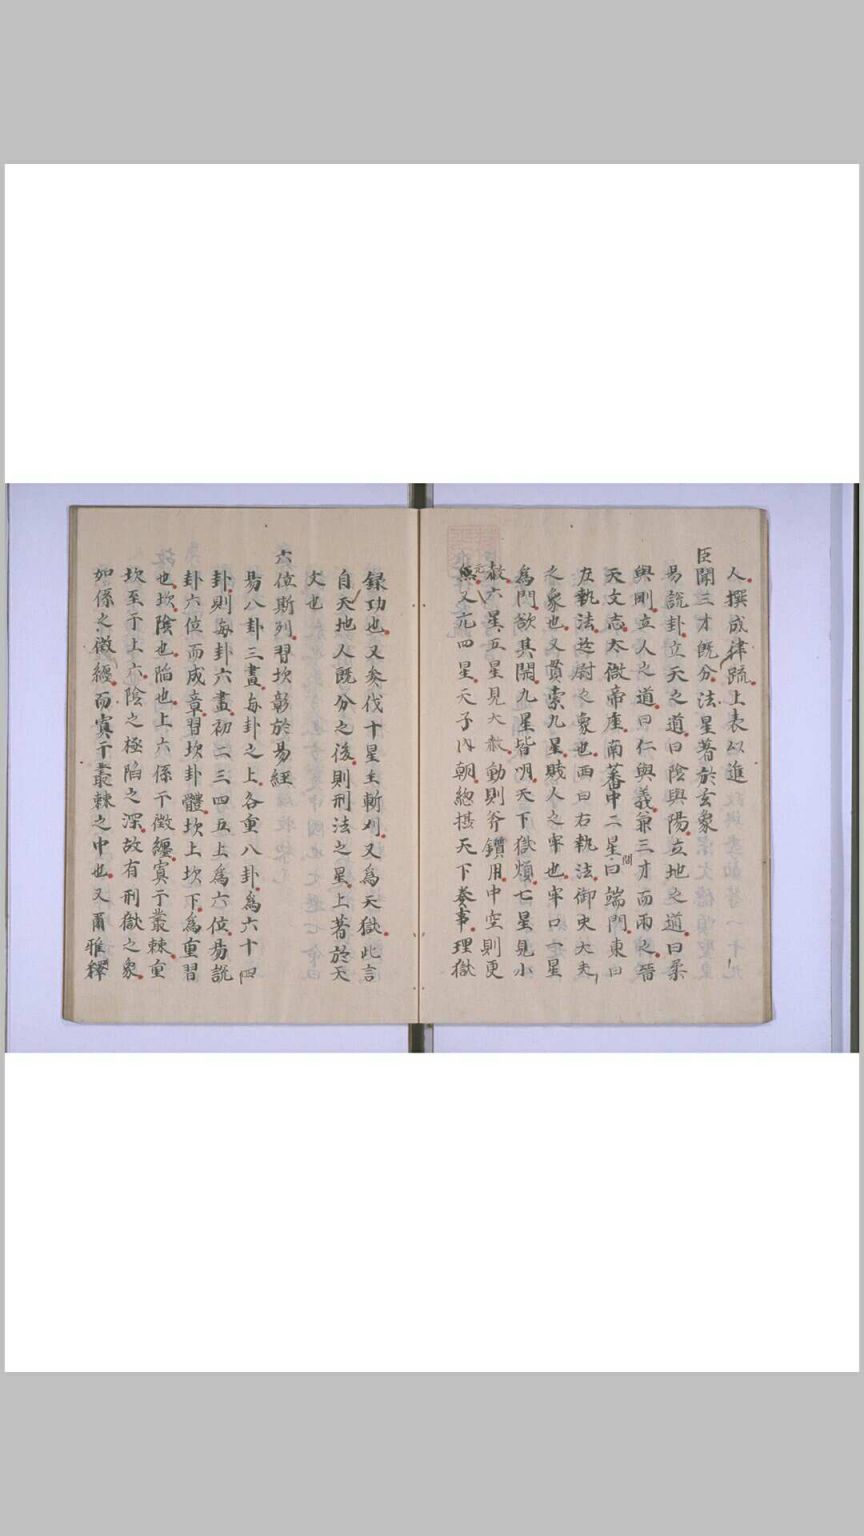 人撰成律疏上表以進
臣聞三才既分法星著於玄象
易說卦立天之道曰陰與陽立地之道曰柔
與剛立人之道曰仁與義兼三才而兩之晉
天文志太微帝座南蕃中二星曰端門東曰
左執法廷尉之象也西曰右執法御史大夫
之象也又貫索九星賤人之牢也牢口一星
為門欲其開九星皆明天下獄煩七星見小
赦六星五星見大赦動則斧鑕用中空則更
元又元四星天子內朝總 天下奏事理獄
録功也又參伐十星主斬刈又為天獄此言
自天地人既分之後則刑法之星上著於天
文也
六位斯列習坎彰於易經
易八卦三畫每卦之上各重八卦為六十四
卦則每卦六畫初二三四五上為六位易說
卦六位而成章習坎卦體坎上坎下為重習
也坎陰也陷也上六係于徽纆寘于叢棘重
坎至于上六陰之極陷之深故有刑獄之象
如係之徽纆而寘于叢棘之中也又爾雅釋